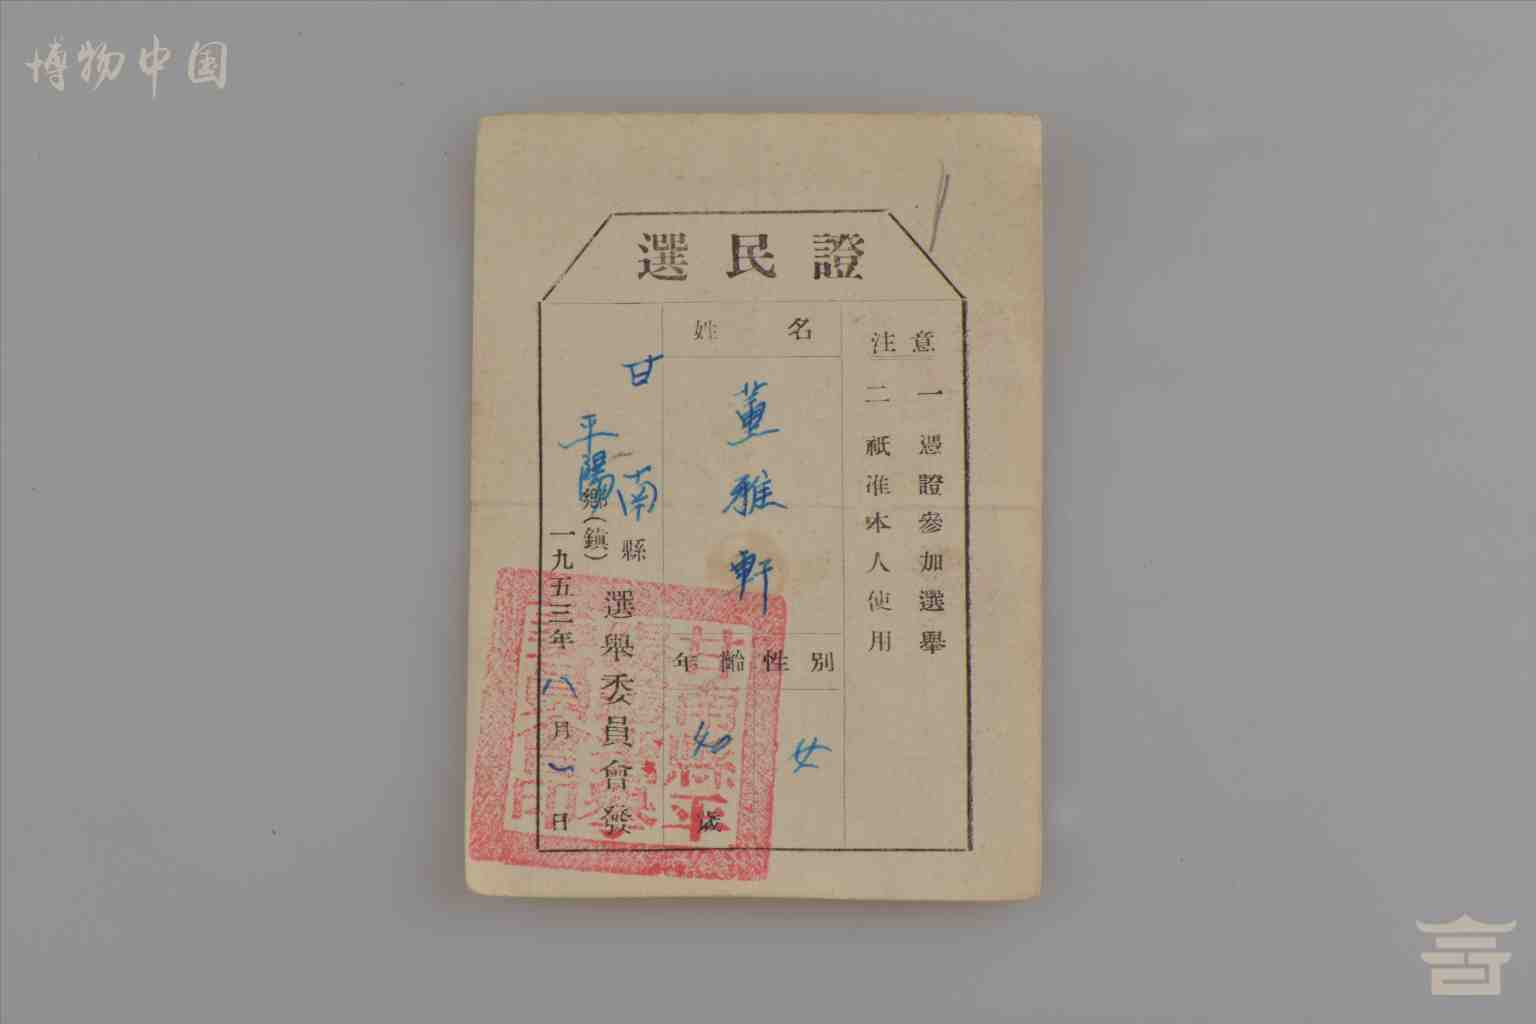 博物中国
選民證
注意
一 憑證參加選舉
二 祇准本人使用
姓名
董雅軒
性別
女
年齡
歲
甘南縣
平陽鄉(鎮)
選舉委員會發
一九五三年八月一日